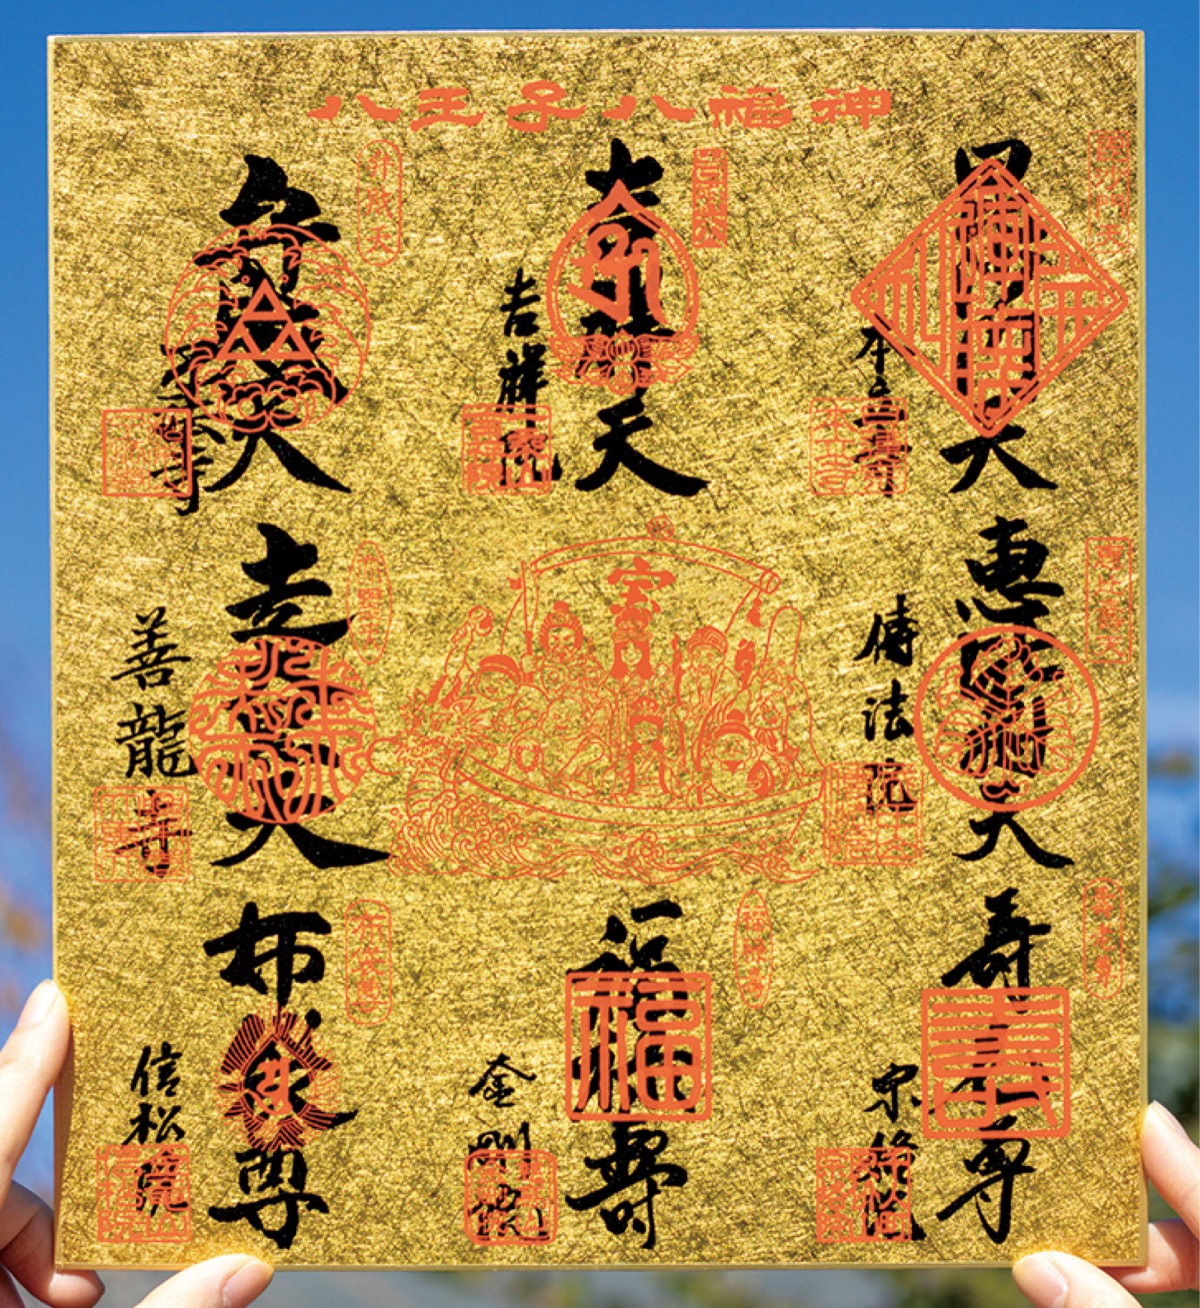 八王子八福神
毘沙門天
本立寺
吉祥天
吉祥天
吉祥院
弁財天
弁財天
了法寺
傳法院
宝
善龍寺
寿老尊
寿老尊
宗格院
福禄寿
福禄寿
福
金剛院
布袋尊
布袋尊
信松院